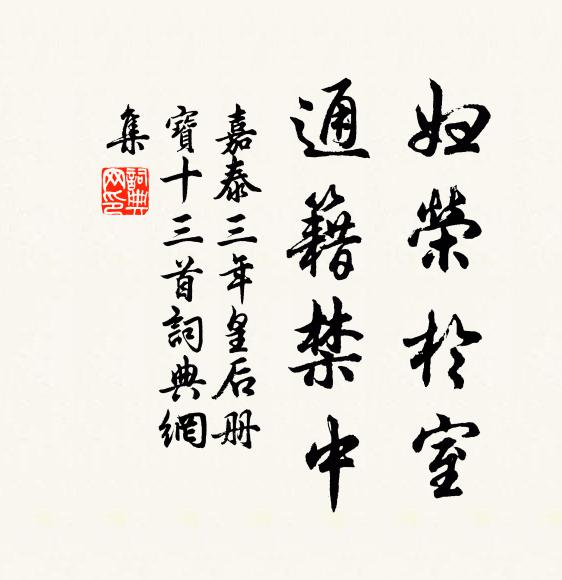 妇榮於室
通籍禁中
嘉泰三年皇后册
寶十三首詞典網
集
詞典网印